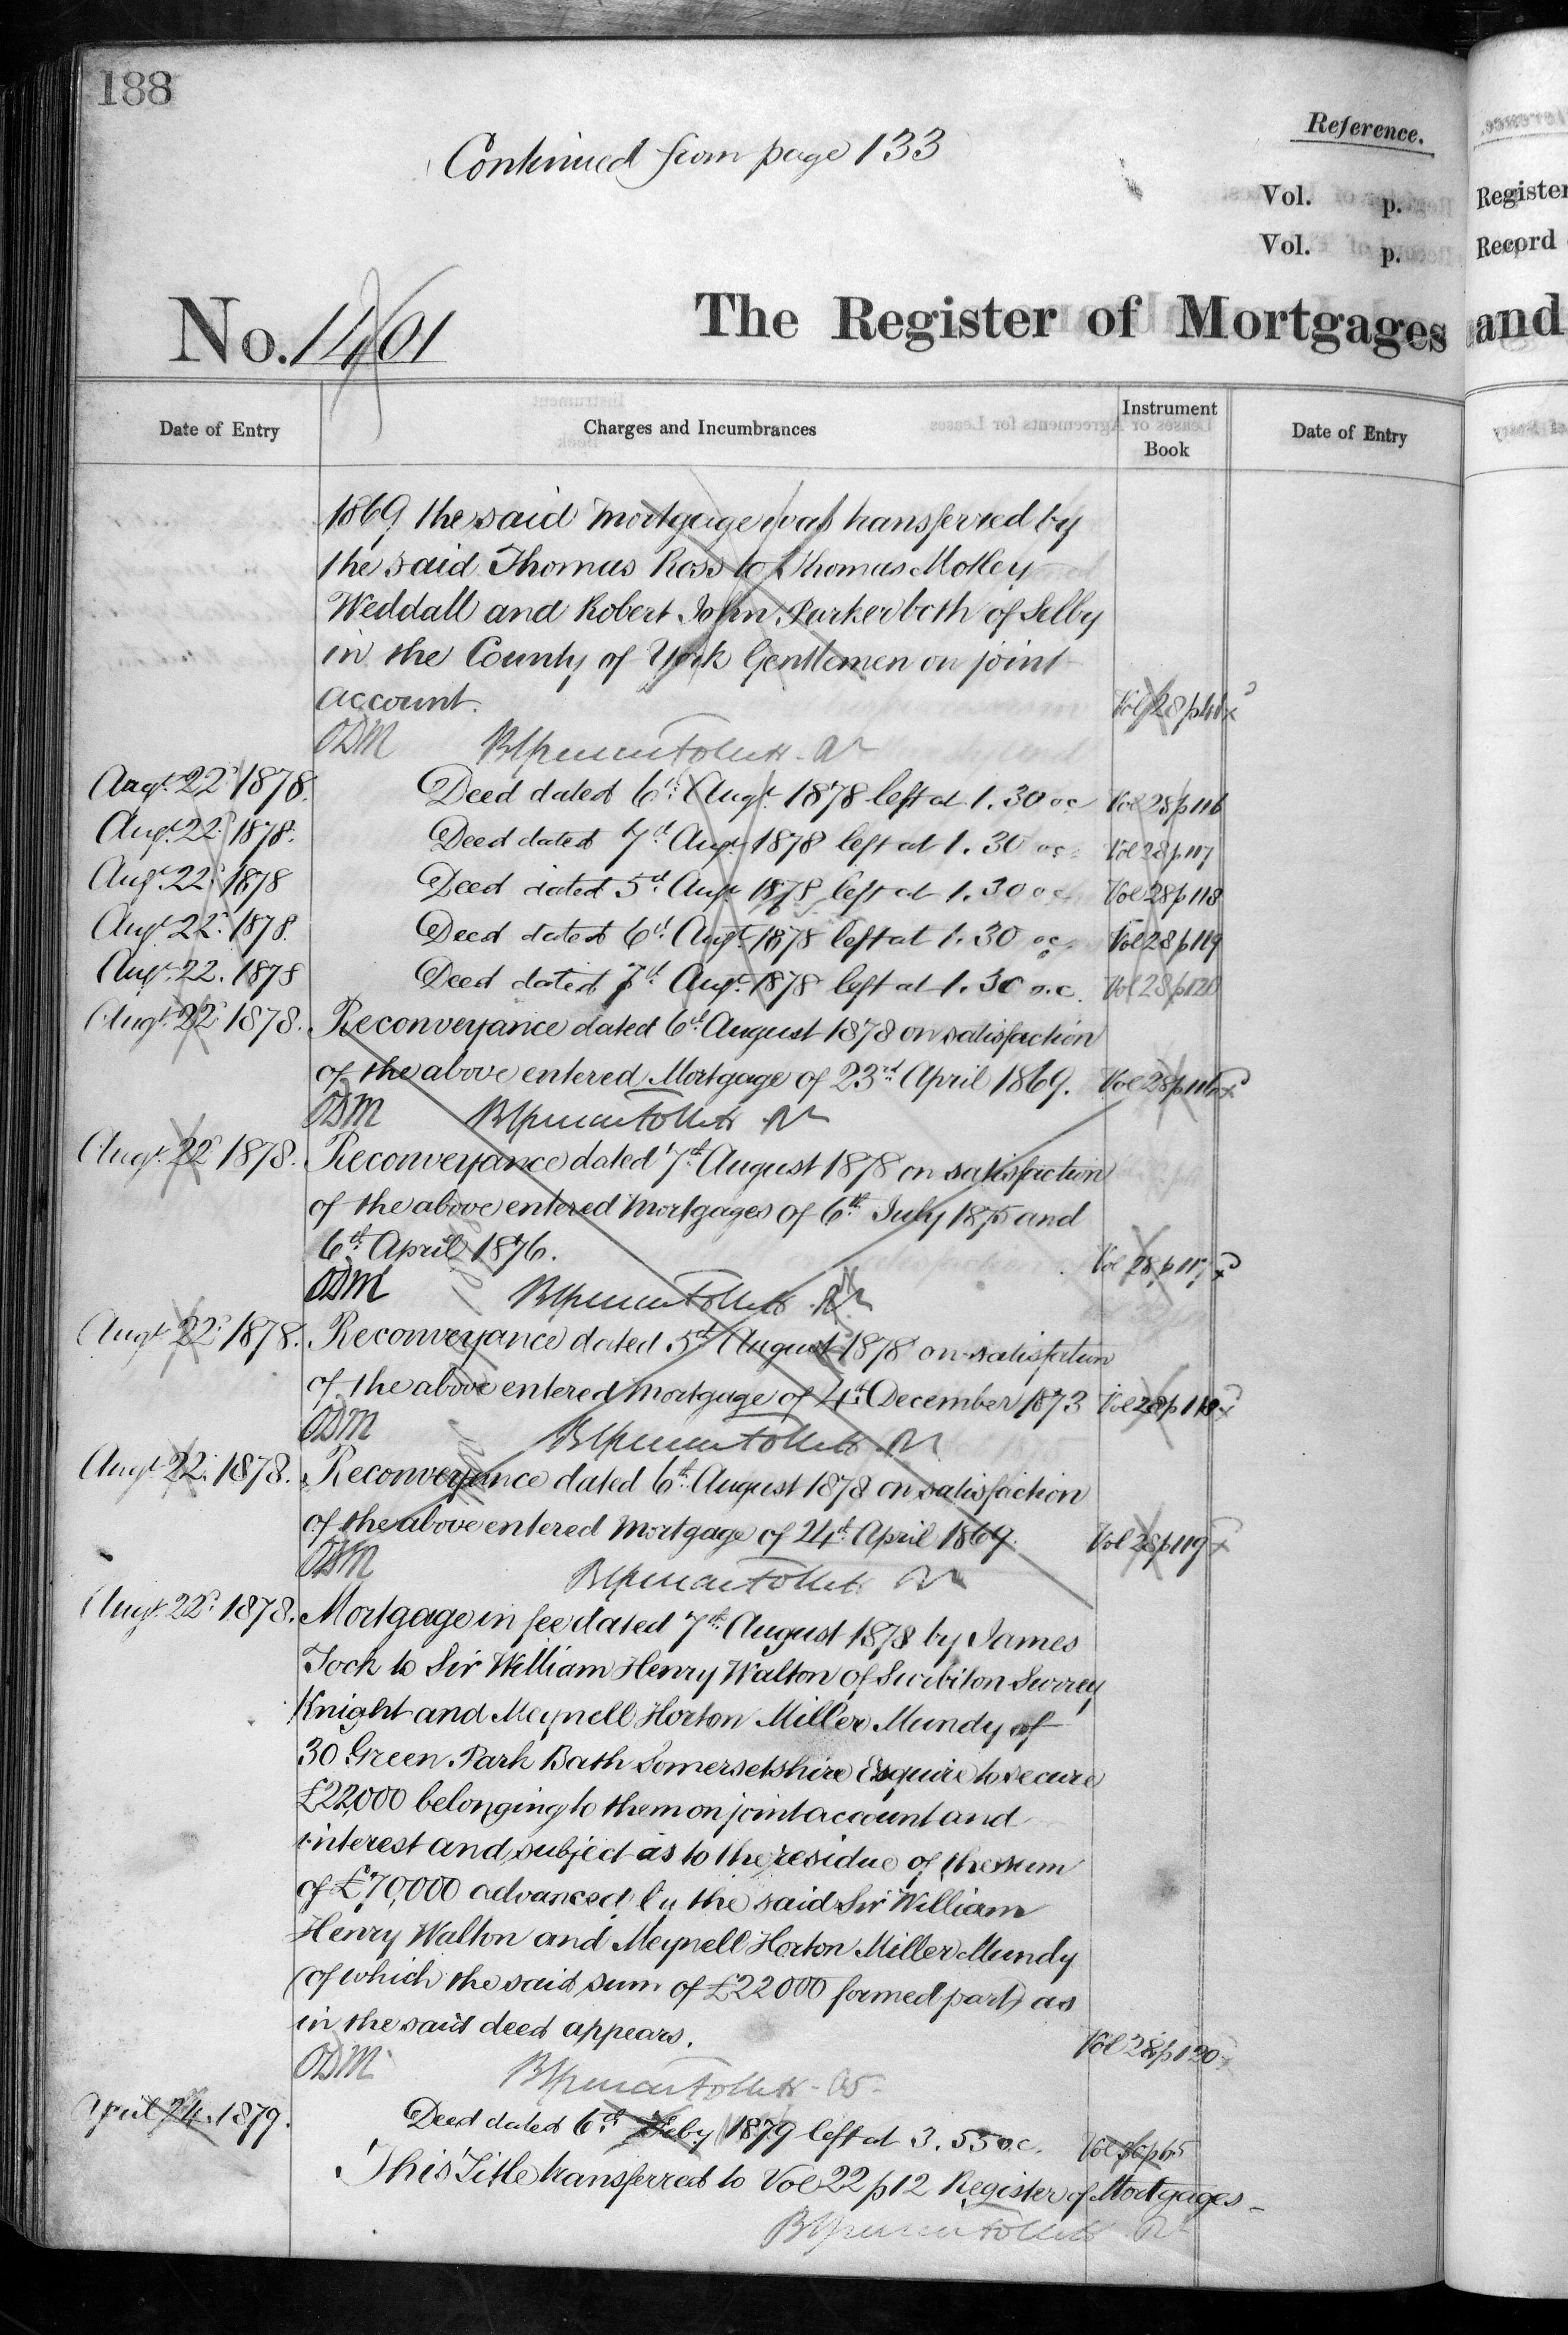 188
Continued from page 133
Reference.
Vol. p.
Vol. p.
Register
Record
No. 1401
The Register of Mortgages and
Date of Entry
Charges and Incumbrances
Instrument Book
Date of Entry
1869 the said mortgage was transferred by
the said Thomas Ross to Thomas Motley
Weddall and Robert John Parker both of Selby
in the County of York Gentlemen on joint
account. Vol 28 p
ODM
Augt. 22d 1878. Deed dated 6th Augt. 1878 left at 1.30 oc Vol 28 p 116
Augt. 22d 1878. Deed dated 7th Augt. 1878 left at 1.30 oc Vol 28 p 117
Augt. 22d 1878 Deed dated 5th Augt. 1878 left at 1.30 oc Vol 28 p 118
Augt. 22d 1878. Deed dated 6th Augt. 1878 left at 1.30 oc Vol 28 p 119
Augt. 22. 1878 Deed dated 7th Augt. 1878 left at 1.30 o.c. Vol 28 p 120
Augt. 22d 1878. Reconveyance dated 6th August 1878 on satisfaction
of the above entered Mortgage of 23rd April 1869. Vol 28 p 116
ODM
Augt. 22d 1878. Reconveyance dated 7th August 1878 on satisfaction
of the above entered Mortgages of 6th July 1875 and
6th April 1876. Vol 28 p 117
ODM
Augt. 22d 1878. Reconveyance dated 5th August 1878 on satisfaction
of the above entered Mortgage of 4th December 1873 Vol 28 p 118
ODM
Augt. 22d 1878. Reconveyance dated 6th August 1878 on satisfaction
of the above entered Mortgage of 24th April 1869. Vol 28 p 119
ODM
Augt. 22d 1878. Mortgage in fee dated 7th August 1878 by James
Toch to Sir William Henry Walton of Surbiton Surrey
Knight and Meynell Horton Miller Mundy of
30 Green Park Bath Somersetshire Esquire to secure
£22,000 belonging to them on joint account and
interest and subject as to the residue of the sum
of £70,000 advanced by the said Sir William
Henry Walton and Meynell Horton Miller Mundy
(of which the said sum of £22000 formed part) as
in the said deed appears. Vol 28 p 120
ODM
April 24. 1879. Deed dated 6th Feby 1879 left at 3.55 oc. Vol
This Title transferred to Vol 22 p 12 Register of Mortgages